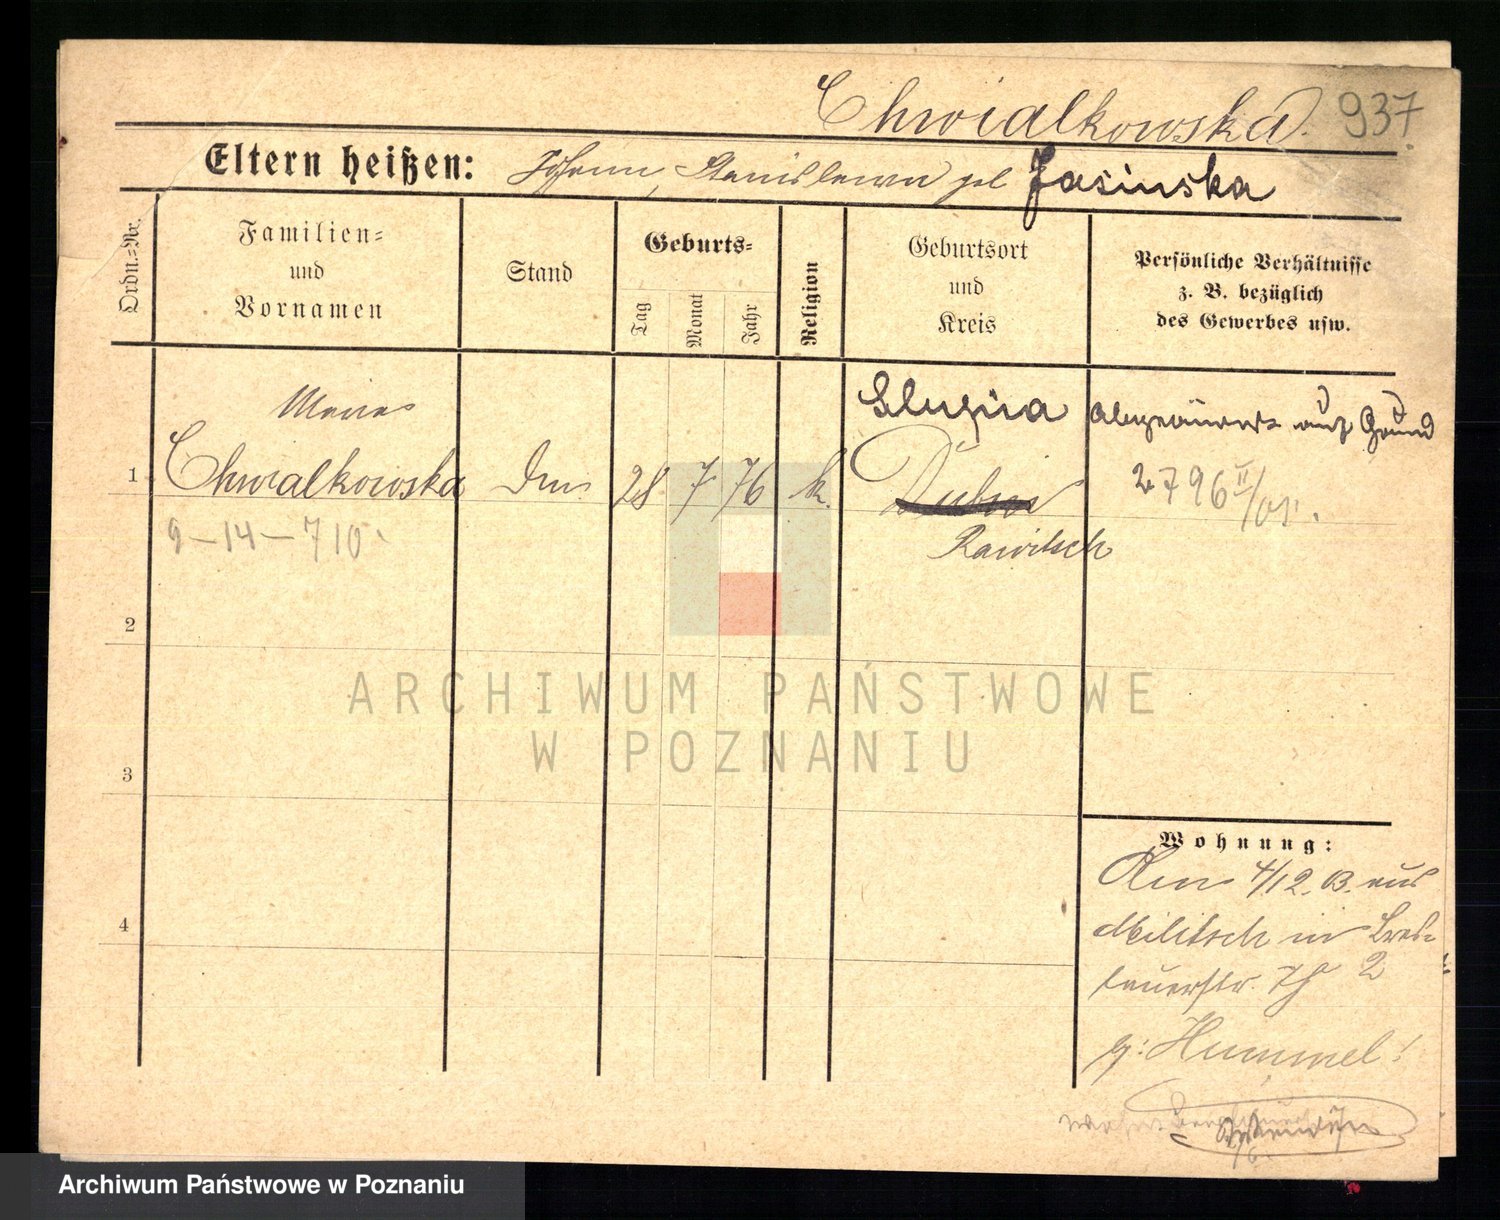 Chwialkowska. 937.
Eltern heißen: Johann, Stanislawa geb Jasinska
Ordn.=Nr.
Familien=
und
Vornamen
Stand
Geburts=
Tag
Monat
Jahr
Religion
Geburtsort
und
Kreis
Persönliche Verhältnisse
z. B. bezüglich
des Gewerbes usw.
Maria
1 Chwialkowska 28 7 76 k.
9-14-710.
Slupia
Rawitsch
auf Grund
2796 II/01.
2
3
4
Wohnung:
Am 4/12. 03. aus
Militsch in Bres-
lauerstr. 2
b: Hummel!
ARCHIWUM PAŃSTWOWE
W POZNANIU
Archiwum Państwowe w Poznaniu